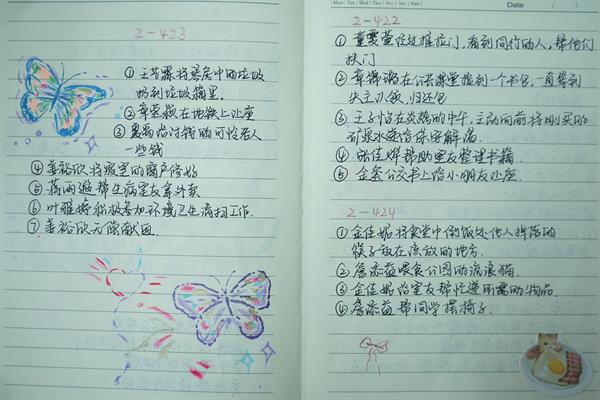 2-423
① 王芳霖将寝房中的垃圾
扔到垃圾箱里.
② 章棠颖在地铁上让座
③ 给讨钱的可怜老人
一些钱
④ 姜裕欣将寝室的窗户修好
⑤ 蒋雨遐帮生病室友拿外卖
⑥ 叶雅婷积极参加环境卫生清扫工作.
⑦ 姜裕欣无偿献血.
Mon Tue Wed Thu Fri Sat Sun
Date / /
2-422
① 童雯萱经过推拉门,看到同行的人,帮他们
扶门
② 章锦涵在公共课堂捡到一个书包,一直等到
失主认领,归还包
③ 王子怡在炎热的中午,主动向前将刚买的
矿泉水送给保安解渴.
④ 张佳烨帮助室友整理书籍.
⑤ 金公交车上给小朋友让座.
2-424
① 金佳妮将食堂中倒饭处他人掉落的
筷子放在该放的地方.
② 詹添益喂食公园的流浪猫.
③ 金佳妮给室友帮忙递所需的物品.
④ 詹添益帮同学摆椅子.